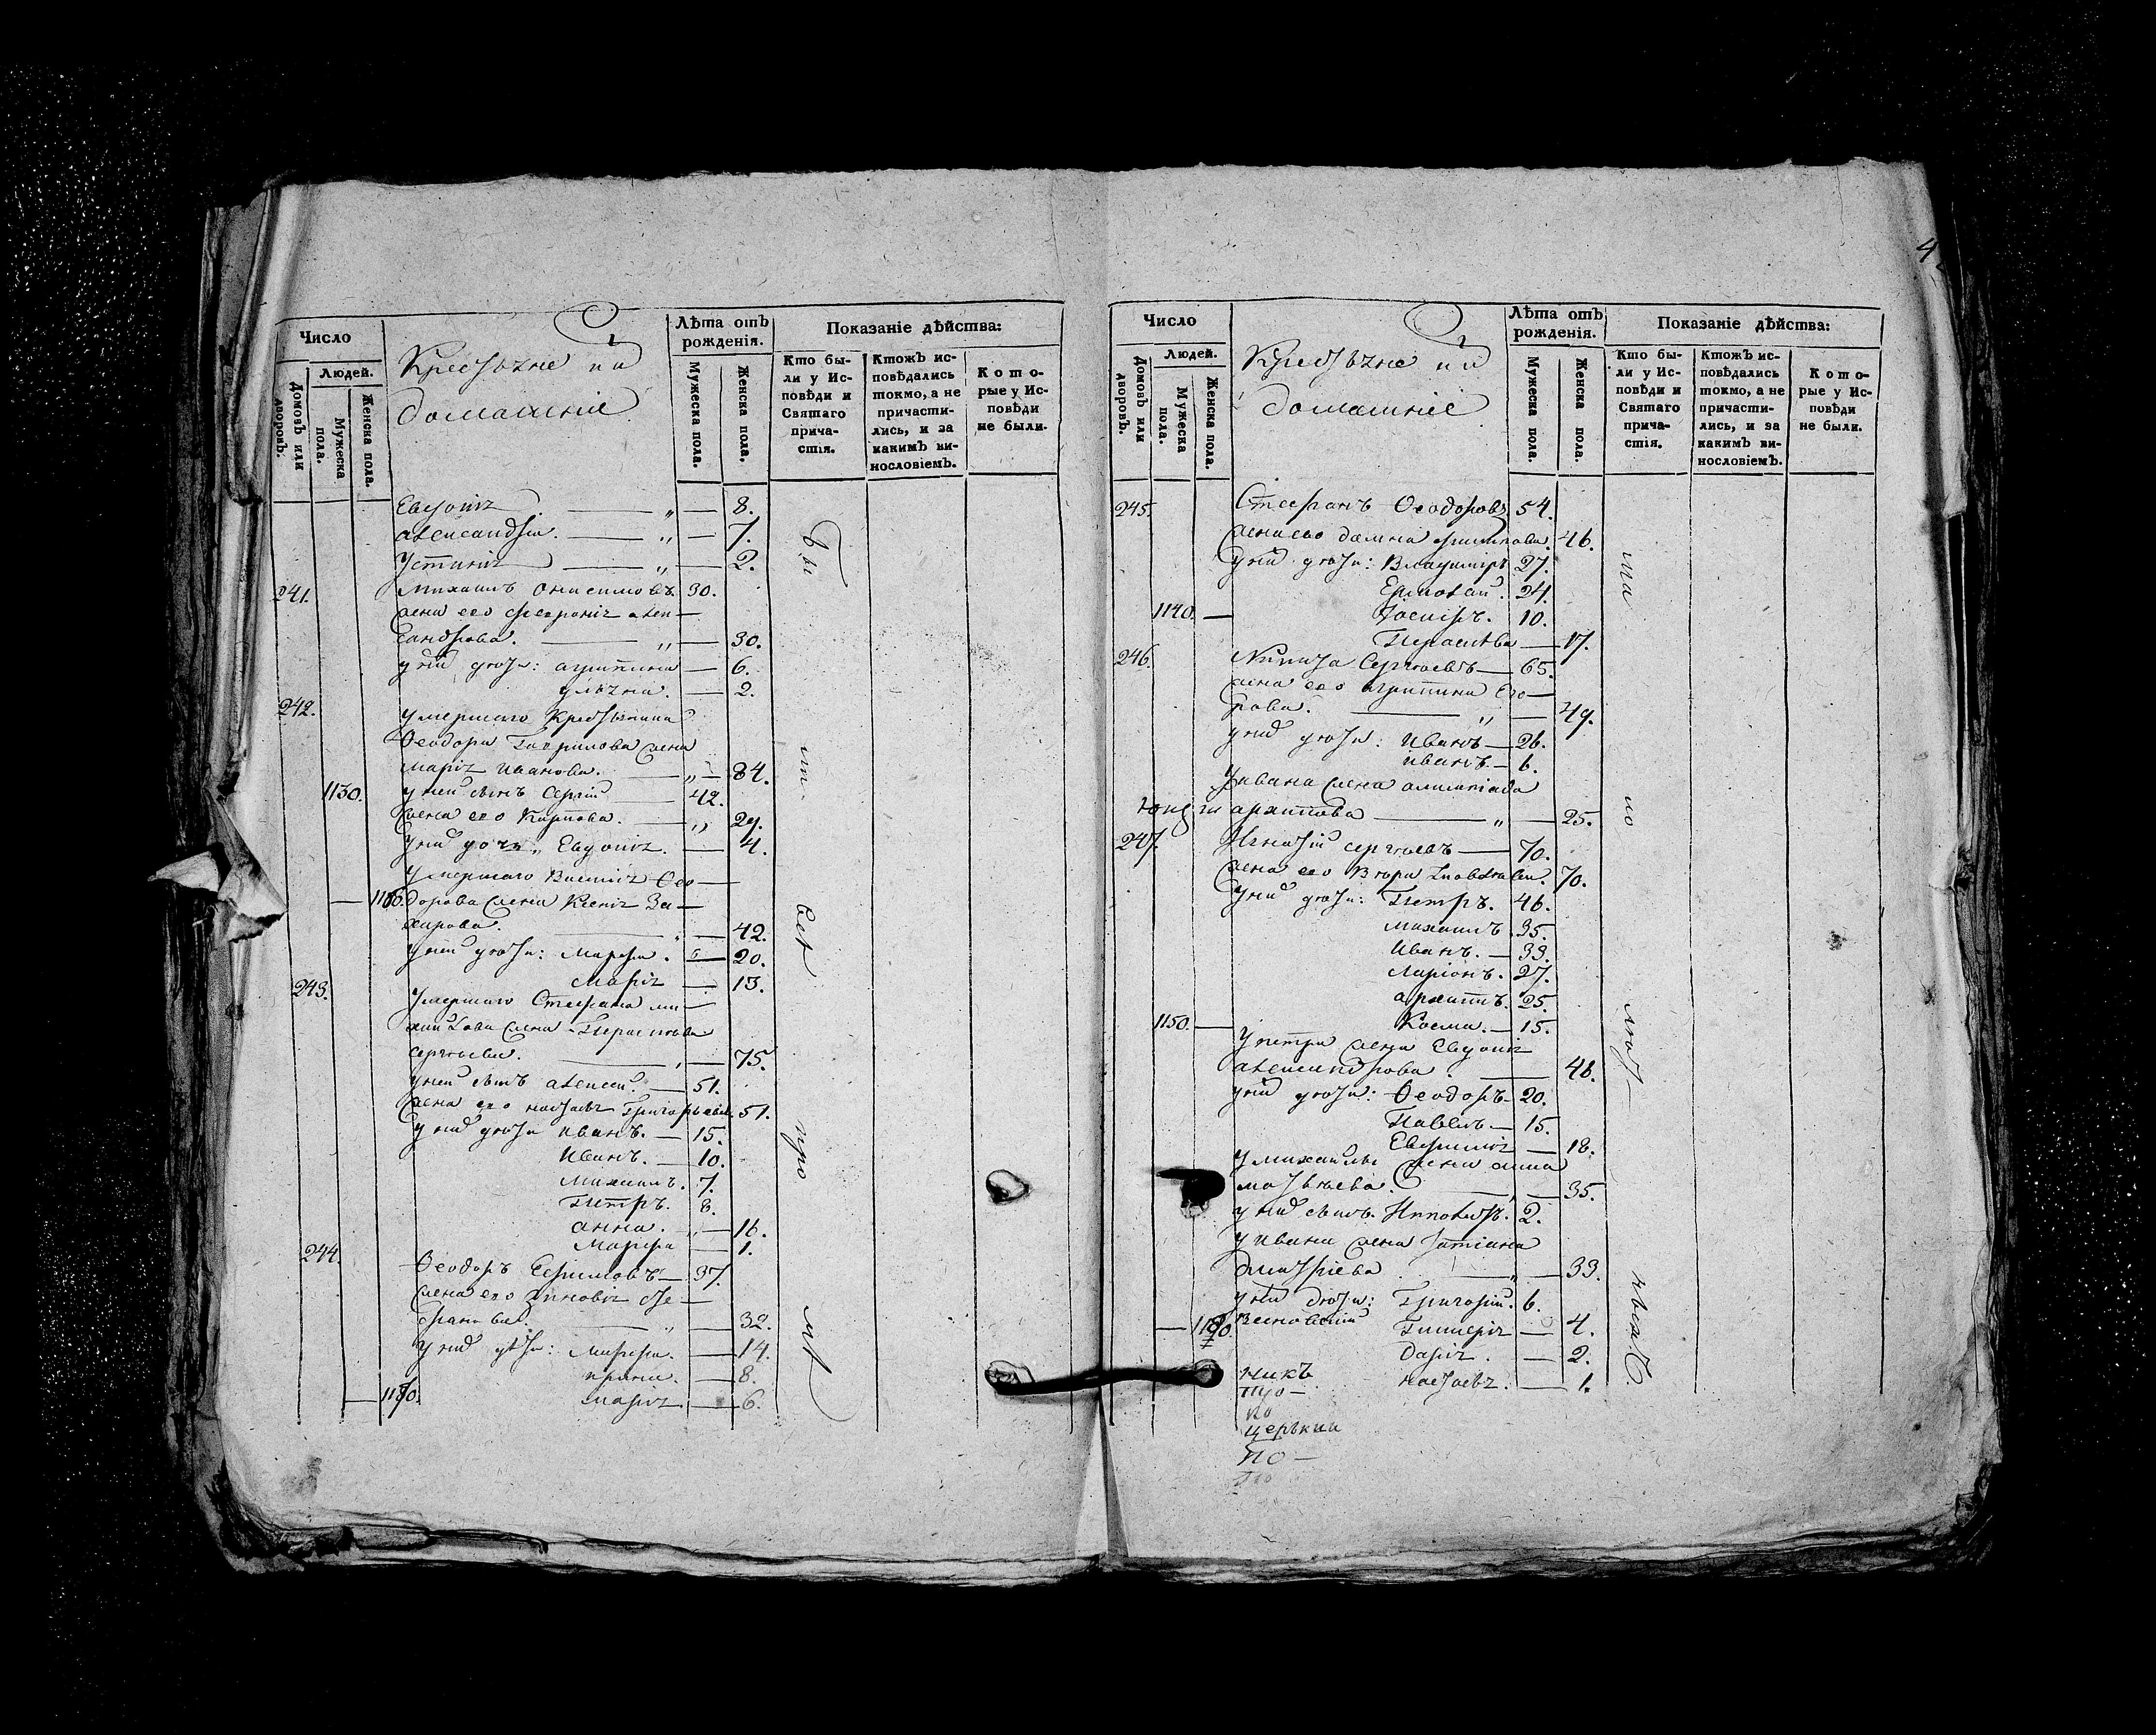 Число
Людей.
Домовъ или дворовъ.
Мужеска пола.
Женска пола.
Крестьяне и их
домашніе
Лѣта отъ рожденія.
Мужеска пола.
Женска пола.
Показаніе дѣйства:
Кто были у Исповѣди и Святаго причастія.
Ктожъ исповѣдались токмо, а не причастились, и за какимъ винословіемъ.
Которые у Исповѣди не были.
Евдокія — „ — 8.
александра. — „ — 7.
Устинія — „ — 2.
241. Михаилъ Онисимовъ. 30.
жена его Феврония алек—
сандрова. — „ — 30.
у них дѣти: агрипина — 6.
ульяна. — 2.
242. умершаго Крестьянина
Ѳеодора Гаврилова жена
марія иванова. — „ — 84.
1130. у ней сынъ Сергій — 42.
жена его Карпова. — „ 29.
у них дочь „ Евдокія. — 4.
умершаго Василія Ѳео—
дорова жена Ксенія За—
харова. — „ — 42.
у ней дѣти: Марфа. — 20.
Марія — 13.
243. Умершаго Стефана ми—
хайлова жена Параскева
сергѣева. — „ — 75.
у ней сынъ алексей. — 51.
жена его настасья Григорьева. 51.
у них дѣти иванъ. — 15.
Иванъ. — 10.
Михаилъ. 7.
Петръ. 8.
анна. — 16.
Марфа — 1.
244. Ѳеодоръ Ефимовъ — 37.
жена его Зиновія Сте—
фанова. — „ — 32.
у них дѣти: Марфа. — 14.
ирина. — 8.
марія — 6.
Бы
ли.
всѣ
про
Число
Людей.
Домовъ или дворовъ.
Мужеска пола.
Женска пола.
Крестьяне и их
домашніе
Лѣта отъ рожденія.
Мужеска пола.
Женска пола.
Показаніе дѣйства:
Кто были у Исповѣди и Святаго причастія.
Ктожъ исповѣдались токмо, а не причастились, и за какимъ винословіемъ.
Которые у Исповѣди не были.
245. Стефанъ Ѳеодоровъ 54.
жена его домна филипова. 46.
у них дѣти: Владимиръ 27.
Ермолай. 24.
1140. — Іосифъ. 10.
Параскева — 17.
246. Никита Сергѣевъ — 65.
жена его агрипина Его—
рова. — „ — 49.
у них дѣти: иванъ — 26.
иванъ. — 6.
У ивана жена олимпіада
архипова — „ — 25.
247. Игнатій сергѣевъ — 70.
жена его Вѣра 70.
у них дѣти: Петръ. 46.
михаилъ 35.
Иванъ. — 33.
Ларіонъ. 27.
архипъ. 25.
1150. — Косма. — 15.
У петра жена Евдокія
александрова. — 48.
у них дѣти: Ѳеодоръ — 20.
Павелъ — 15.
Евфимія — 18.
у михайлы жена анна
матвѣева. — „ — 35.
у них сынъ. Ипполитъ. 2.
у ивана жена татіана
дмитріева. — „ — 33.
у них дѣти: Григорій. 6.
Гликерія — 4.
Дарія. — 2.
настасья. — 1.
никъ
по
церькии
по —